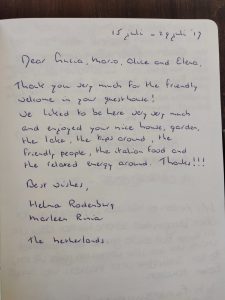 15 juli - 29 juli '17
Dear Cinzia, Mario, Olive and Elena,
Thank you very much for the friendly
welcome in your guesthouse!
We liked to be here very very much
and enjoyed your nice house, garden,
the lake, the trips around, the
friendly people, the italian food and
the relaxed energy around. Thanks!!!
Best wishes,
Helma Rodenburg
Marleen Rinia
The Netherlands.